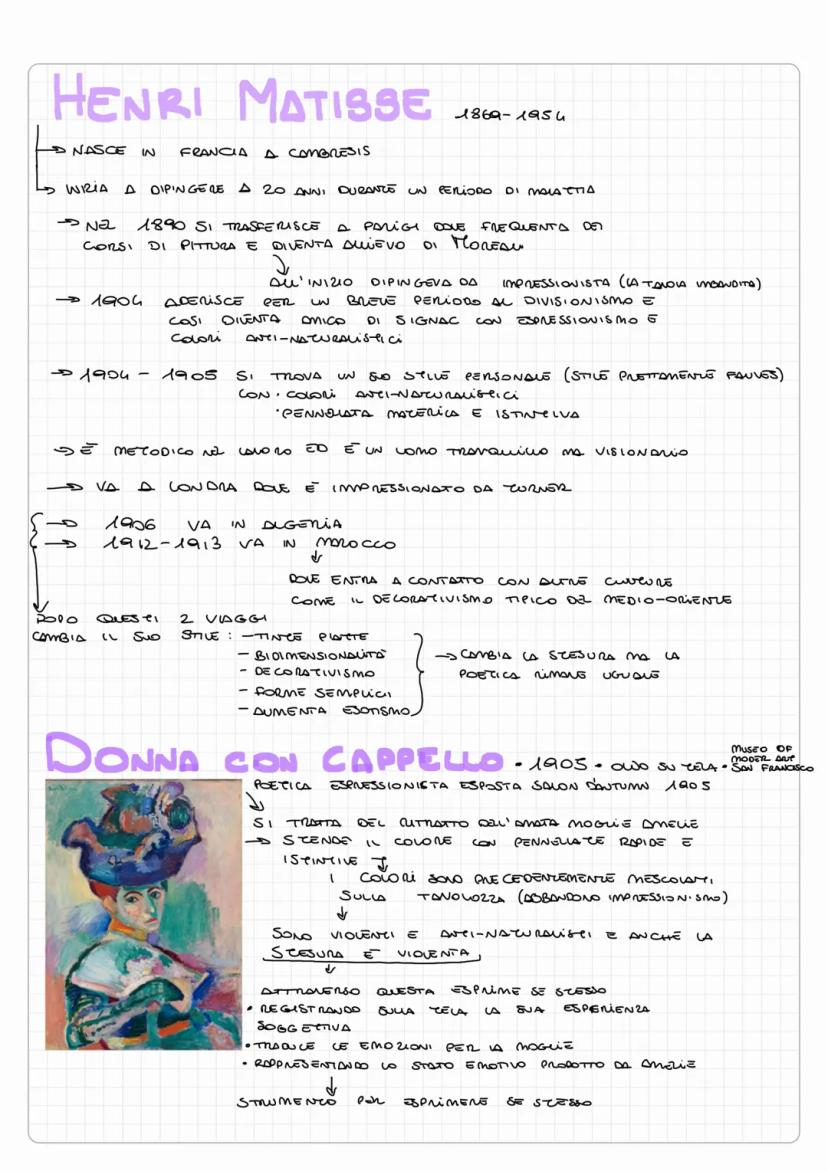 HENRI MATISSE 1869-1954
→ NASCE IN FRANCIA A CAMBRESIS
→ INIZIA A DIPINGERE A 20 ANNI DURANTE UN PERIODO DI MALATTIA
→ NEL 1890 SI TRASFERISCE A PARIGI DOVE FREQUENTA DEI
CORSI DI PITTURA E DIVENTA ALLIEVO DI MOREAU
ALL'INIZIO DIPINGEVA DA IMPRESSIONISTA (LA TAVOLA IMBANDITA)
→ 1904 ADERISCE PER UN BREVE PERIODO AL DIVISIONISMO E
COSI DIVENTA AMICO DI SIGNAC CON ESPRESSIONISMO E
COLORI ANTI-NATURALISTICI
→ 1904 - 1905 SI TROVA UN SUO STILE PERSONALE (STILE PRETTAMENTE FAUVES)
CON · COLORI ANTI-NATURALISTICI
· PENNELLATA MATERICA E ISTINTIVA
→ È METODICO NEL LAVORO ED È UN UOMO TRANQUILLO MA VISIONARIO
→ VA A LONDRA DOVE È IMPRESSIONATO DA TURNER
→ 1906 VA IN ALGERIA
→ 1912-1913 VA IN MAROCCO
DOVE ENTRA A CONTATTO CON ALTRE CULTURE
COME IL DECORATIVISMO TIPICO DEL MEDIO-ORIENTE
DOPO QUESTI 2 VIAGGI
CAMBIA IL SUO STILE : - TINTE PIATTE
- BIDIMENSIONALITÀ
- DECORATIVISMO
- FORME SEMPLICI
- AUMENTA ESOTISMO
→ CAMBIA LA STESURA MA LA
POETICA RIMANE UGUALE
DONNA CON CAPPELLO · 1905 · OLIO SU TELA ·
MUSEO OF
MODER ART
SAN FRANCISCO
POETICA ESPRESSIONISTA ESPOSTA SALON D'AUTUMN 1905
SI TRATTA DEL RITRATTO DELL'AMATA MOGLIE AMELIE
→ STENDE IL COLORE CON PENNELLATE RAPIDE E
ISTINTIVE
I COLORI SONO PRECEDENTEMENTE MESCOLATI
SULLA TAVOLOZZA (ABBANDONO IMPRESSIONISMO)
SONO VIOLENTI E ANTI-NATURALISTI E ANCHE LA
STESURA È VIOLENTA
ATTRAVERSO QUESTA ESPRIME SE STESSO
· REGISTRANDO SULLA TELA LA SUA ESPERIENZA
SOGGETTIVA
· TRADUCE LE EMOZIONI PER LA MOGLIE
· RAPPRESENTANDO LO STATO EMOTIVO PRODOTTO DA AMELIE
STRUMENTO PER ESPRIMERE SE STESSO